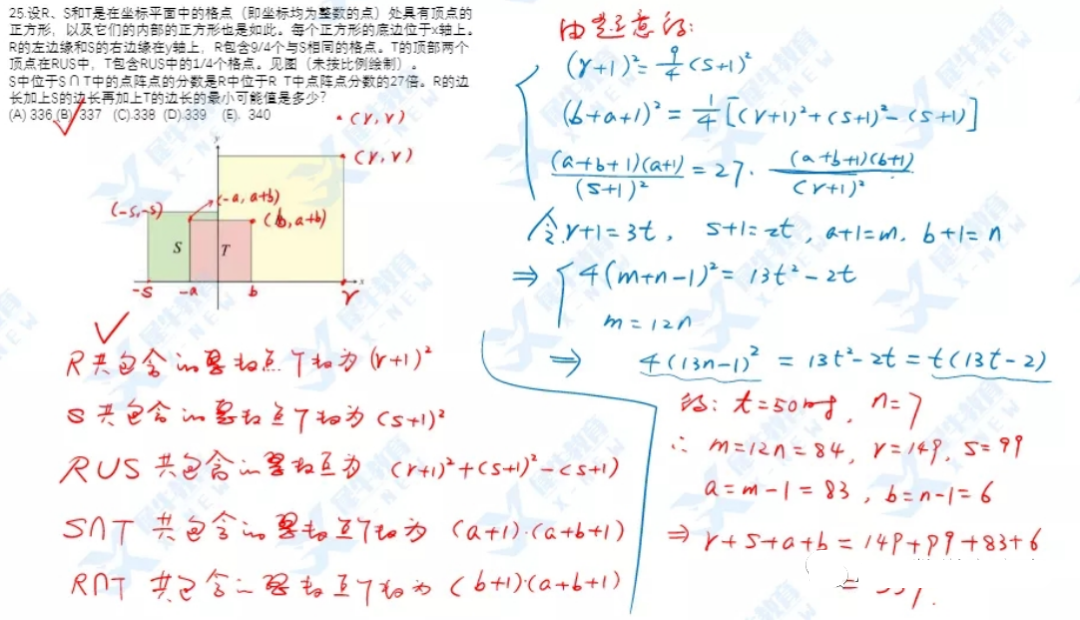 25.设R、S和T是在坐标平面中的格点（即坐标均为整数的点）处具有顶点的
正方形，以及它们的内部的正方形也是如此。每个正方形的底边位于x轴上。
R的左边缘和S的右边缘在y轴上，R包含9/4个与S相同的格点。T的顶部两个
顶点在RUS中，T包含RUS中的1/4个格点。见图（未按比例绘制）。
S中位于S∩T中的点阵点的分数是R中位于R T中点阵点分数的27倍。R的边
长加上S的边长再加上T的边长的最小可能值是多少?
(A) 336 (B) 337 (C).338 (D).339 (E). 340
(r, r)
y
(r, r)
(-a, a+b)
(-s,-s)
(b, a+b)
S
T
x
-s
-a
b
r
R 共包含的整格点个数为 (r+1)²
S 共包含的整格点个数为 (s+1)²
RUS 共包含的整格点为 (r+1)²+(s+1)²-(s+1)
S∩T 共包含的整格点个数为 (a+1)·(a+b+1)
R∩T 共包含的整格点个数为 (b+1)·(a+b+1)
由题意的:
(r+1)²=9/4(s+1)²
(b+a+1)²=1/4[(r+1)²+(s+1)²-(s+1)]
(a+b+1)(a+1)/(s+1)²=27·(a+b+1)(b+1)/(r+1)²
令r+1=3t, s+1=2t, a+1=m. b+1=n
⇒ 4(m+n-1)²=13t²-2t
m=12n
⇒ 4(13n-1)²=13t²-2t=t(13t-2)
的: t=50时, n=7
∴ m=12n=84, r=149, s=99
a=m-1=83, b=n-1=6
⇒ r+s+a+b=149+99+83+6
犀牛教育
X-NEW